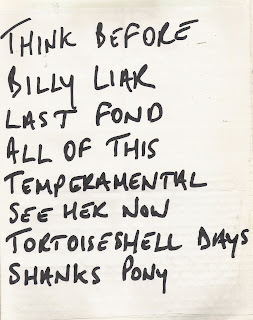 THINK BEFORE
BILLY LIAR
LAST FOND
ALL OF THIS
TEMPERAMENTAL
SEE HER NOW
TORTOISESHELL DAYS
SHANKS PONY